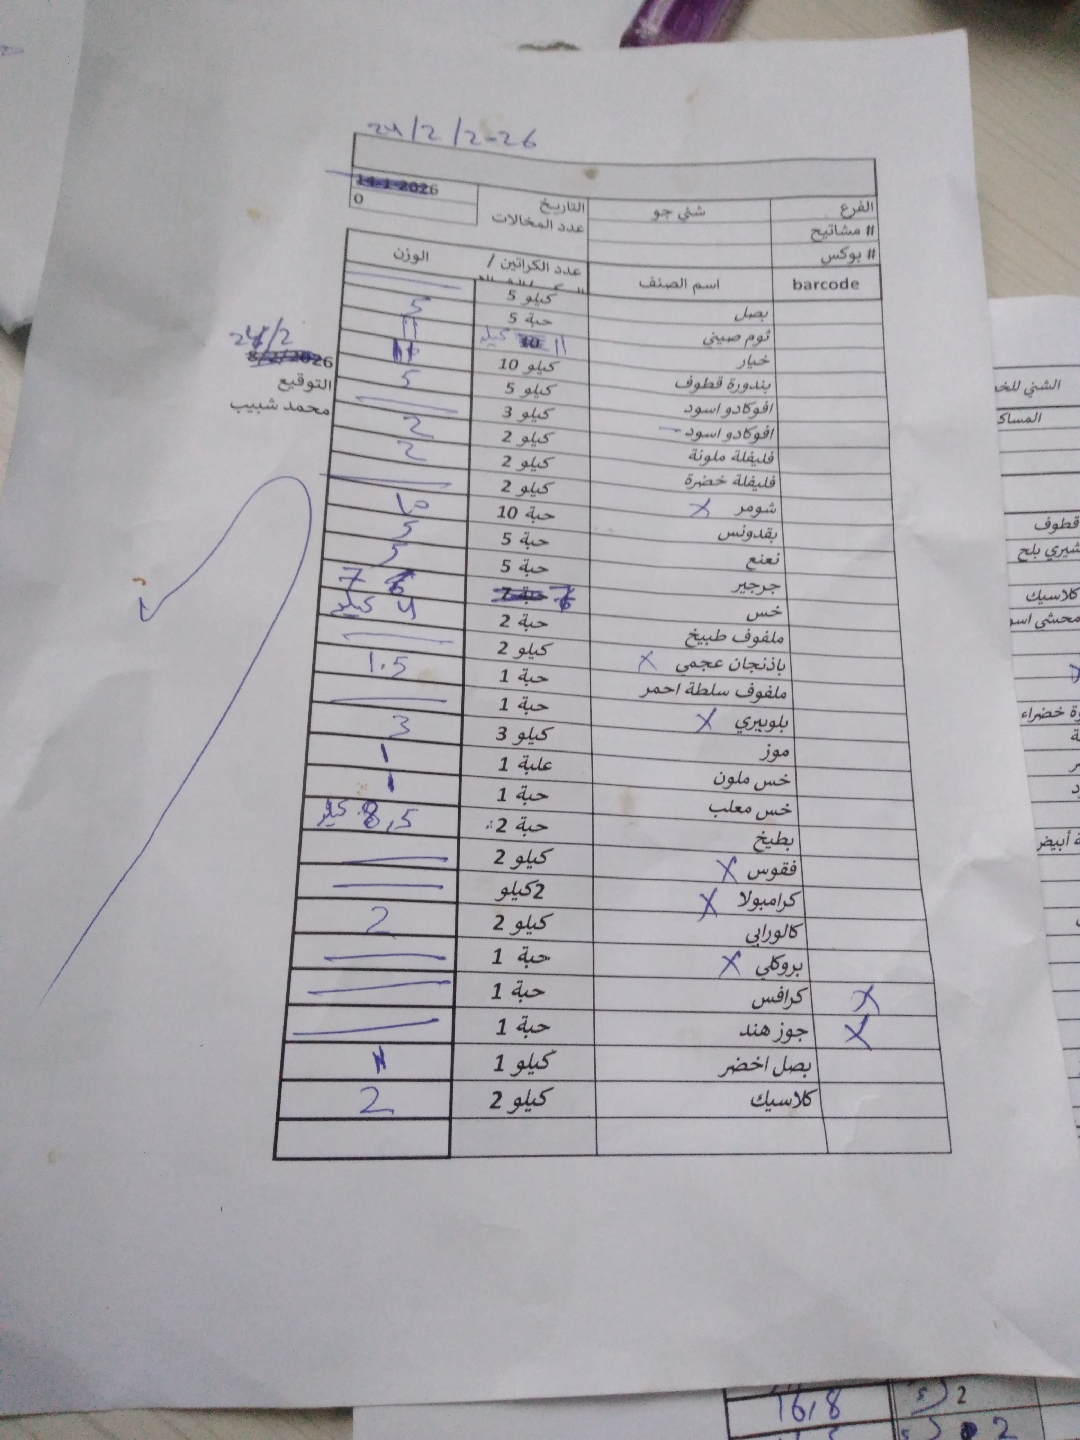 24/2/2026
الفرع شني جو التاريخ 14-1-2026
# مشاتيح عدد المخالات 0
# بوكس
barcode اسم الصنف عدد الكراتين / الوزن
بصل 5 كيلو
ثوم صيني 5 حبة 5
خيار 10 11 كيلو 11
بندورة قطوف 10 كيلو
افوكادو اسود 5 كيلو 5
افوكادو اسود 3 كيلو
فليفلة ملونة 2 كيلو 2
فليفلة خضرة 2 كيلو 2
شومر X 2 كيلو
بقدونس 10 حبة 10
نعنع 5 حبة 5
جرجير 5 حبة 5
خس 7 حبة 7
ملفوف طبيخ 2 حبة 4 كيلو
باذنجان عجمي X 2 كيلو
ملفوف سلطة احمر 1 حبة 1.5
بلوبيري X 1 حبة
موز 3 كيلو 3
خس ملون 1 علبة 1
خس معلب 1 حبة 1
بطيخ 2 حبة 8,5 كيلو
فقوس X 2 كيلو
كرامبولا X 2كيلو
كالورابي 2 كيلو 2
بروكلي X 1 حبة
X كرافس 1 حبة
X جوز هند 1 حبة
بصل اخضر 1 كيلو 1
كلاسيك 2 كيلو 2
24/2
8/2/2026
التوقيع
محمد شبيب
الشني للخ
المساك
قطوف
شيري بلح
كلاسيك
محشي اسو
وة خضراء
ة أبيض
16,8 2
2